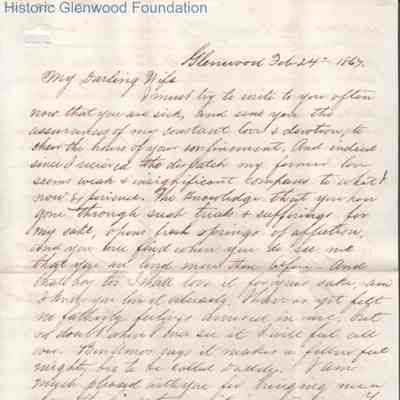 Historic Glenwood Foundation
Glenwood Feb 24th 1867.
My Darling Wife
I must try to write to you often
now that you are sick, and send you the
assurances of my constant love & devotion, to
cheer the hours of your confinement. And indeed
since I received the dispatch my former love
seems weak & insignificant compared to what I
now experience. The knowledge that you have
gone through such trials & sufferings for
my sake, opens fresh springs of affection,
and you will find when you do see me
that you are loved more than before - And
that boy too I shall love it for your sake, and
I know you love it already. I have as yet felt
no fatherly feelings aroused in me, but
no doubt when I once see it I will feel all
over. says it makes a fellow feel
mighty big to be called Daddy. I am
much pleased with you for bringing me a